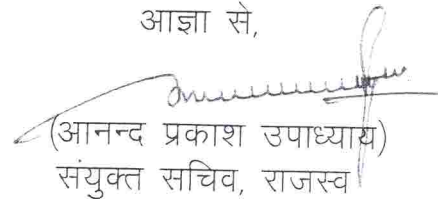 आज्ञा से,
(आनन्द प्रकाश उपाध्याय)
संयुक्त सचिव, राजस्व